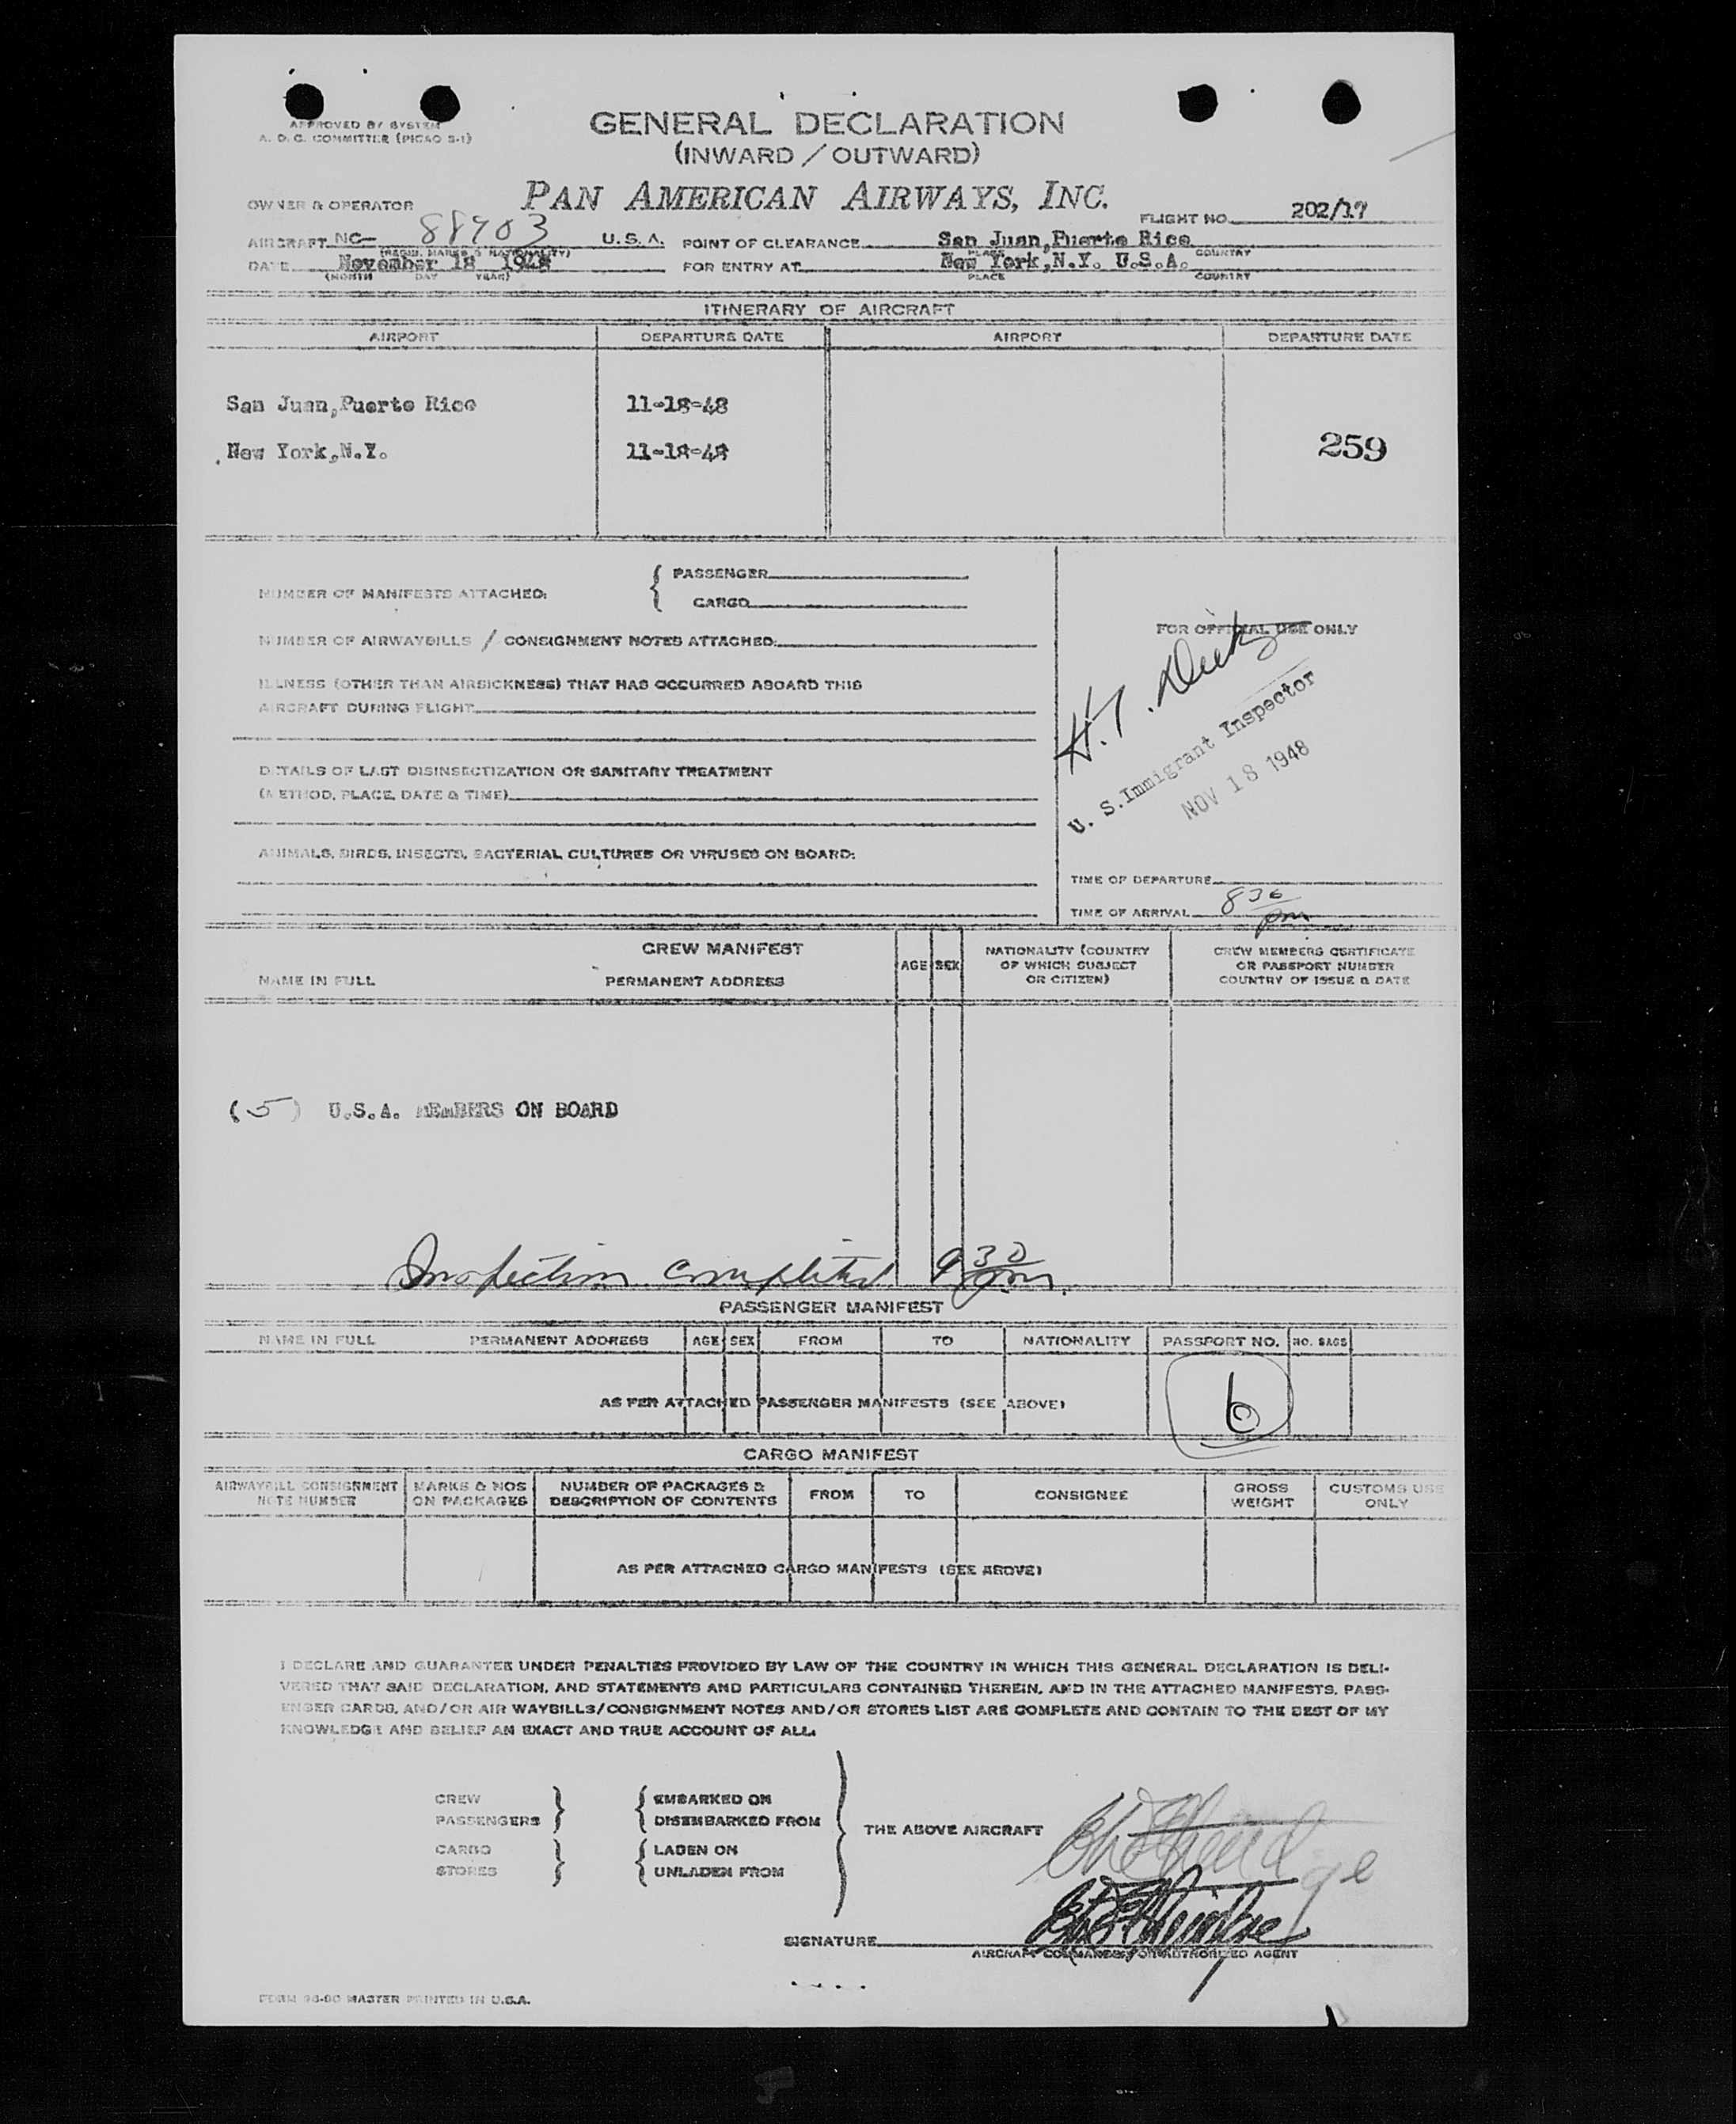 APPROVED BY SYSTEM
A. D. C. COMMITTEE (PICAO S-1)
GENERAL DECLARATION
(INWARD / OUTWARD)
OWNER & OPERATOR PAN AMERICAN AIRWAYS, INC.
FLIGHT NO. 202/17
AIRCRAFT NC- 88903 U.S.A. POINT OF CLEARANCE San Juan, Puerto Rico
(REGIS. MARKS & NATIONALITY) PLACE COUNTRY
DATE November 18 1948 FOR ENTRY AT New York, N.Y. U.S.A.
(MONTH DAY YEAR) PLACE COUNTRY
ITINERARY OF AIRCRAFT
AIRPORT DEPARTURE DATE AIRPORT DEPARTURE DATE
San Juan, Puerto Rico 11-18-48
New York, N.Y. 11-18-48
259
NUMBER OF MANIFESTS ATTACHED: { PASSENGER
CARGO
NUMBER OF AIRWAYBILLS / CONSIGNMENT NOTES ATTACHED:
ILLNESS (OTHER THAN AIRSICKNESS) THAT HAS OCCURRED ABOARD THIS
AIRCRAFT DURING FLIGHT
DETAILS OF LAST DISINSECTIZATION OR SANITARY TREATMENT
(METHOD, PLACE, DATE & TIME)
ANIMALS, BIRDS, INSECTS, BACTERIAL CULTURES OR VIRUSES ON BOARD:
FOR OFFICIAL USE ONLY
U. S. Immigrant Inspector
NOV 18 1948
TIME OF DEPARTURE
TIME OF ARRIVAL 836 pm
CREW MANIFEST
NAME IN FULL PERMANENT ADDRESS AGE SEX NATIONALITY (COUNTRY OF WHICH SUBJECT OR CITIZEN) CREW MEMBERS CERTIFICATE OR PASSPORT NUMBER COUNTRY OF ISSUE & DATE
(5) U.S.A. MEMBERS ON BOARD
Inspection completed 930 pm.
PASSENGER MANIFEST
NAME IN FULL PERMANENT ADDRESS AGE SEX FROM TO NATIONALITY PASSPORT NO. NO. BAGS
AS PER ATTACHED PASSENGER MANIFESTS (SEE ABOVE)
6
CARGO MANIFEST
AIRWAYBILL CONSIGNMENT NOTE NUMBER MARKS & NOS ON PACKAGES NUMBER OF PACKAGES & DESCRIPTION OF CONTENTS FROM TO CONSIGNEE GROSS WEIGHT CUSTOMS USE ONLY
AS PER ATTACHED CARGO MANIFESTS (SEE ABOVE)
I DECLARE AND GUARANTEE UNDER PENALTIES PROVIDED BY LAW OF THE COUNTRY IN WHICH THIS GENERAL DECLARATION IS DELI-
VERED THAT SAID DECLARATION, AND STATEMENTS AND PARTICULARS CONTAINED THEREIN, AND IN THE ATTACHED MANIFESTS, PASS-
ENGER CARDS, AND/OR AIR WAYBILLS/CONSIGNMENT NOTES AND/OR STORES LIST ARE COMPLETE AND CONTAIN TO THE BEST OF MY
KNOWLEDGE AND BELIEF AN EXACT AND TRUE ACCOUNT OF ALL
CREW EMBARKED ON
PASSENGERS DISEMBARKED FROM
THE ABOVE AIRCRAFT
CARGO LADEN ON
STORES UNLADEN FROM
SIGNATURE
AIRCRAFT COMMANDER / OR AUTHORIZED AGENT
FORM 96-60 MASTER PRINTED IN U.S.A.